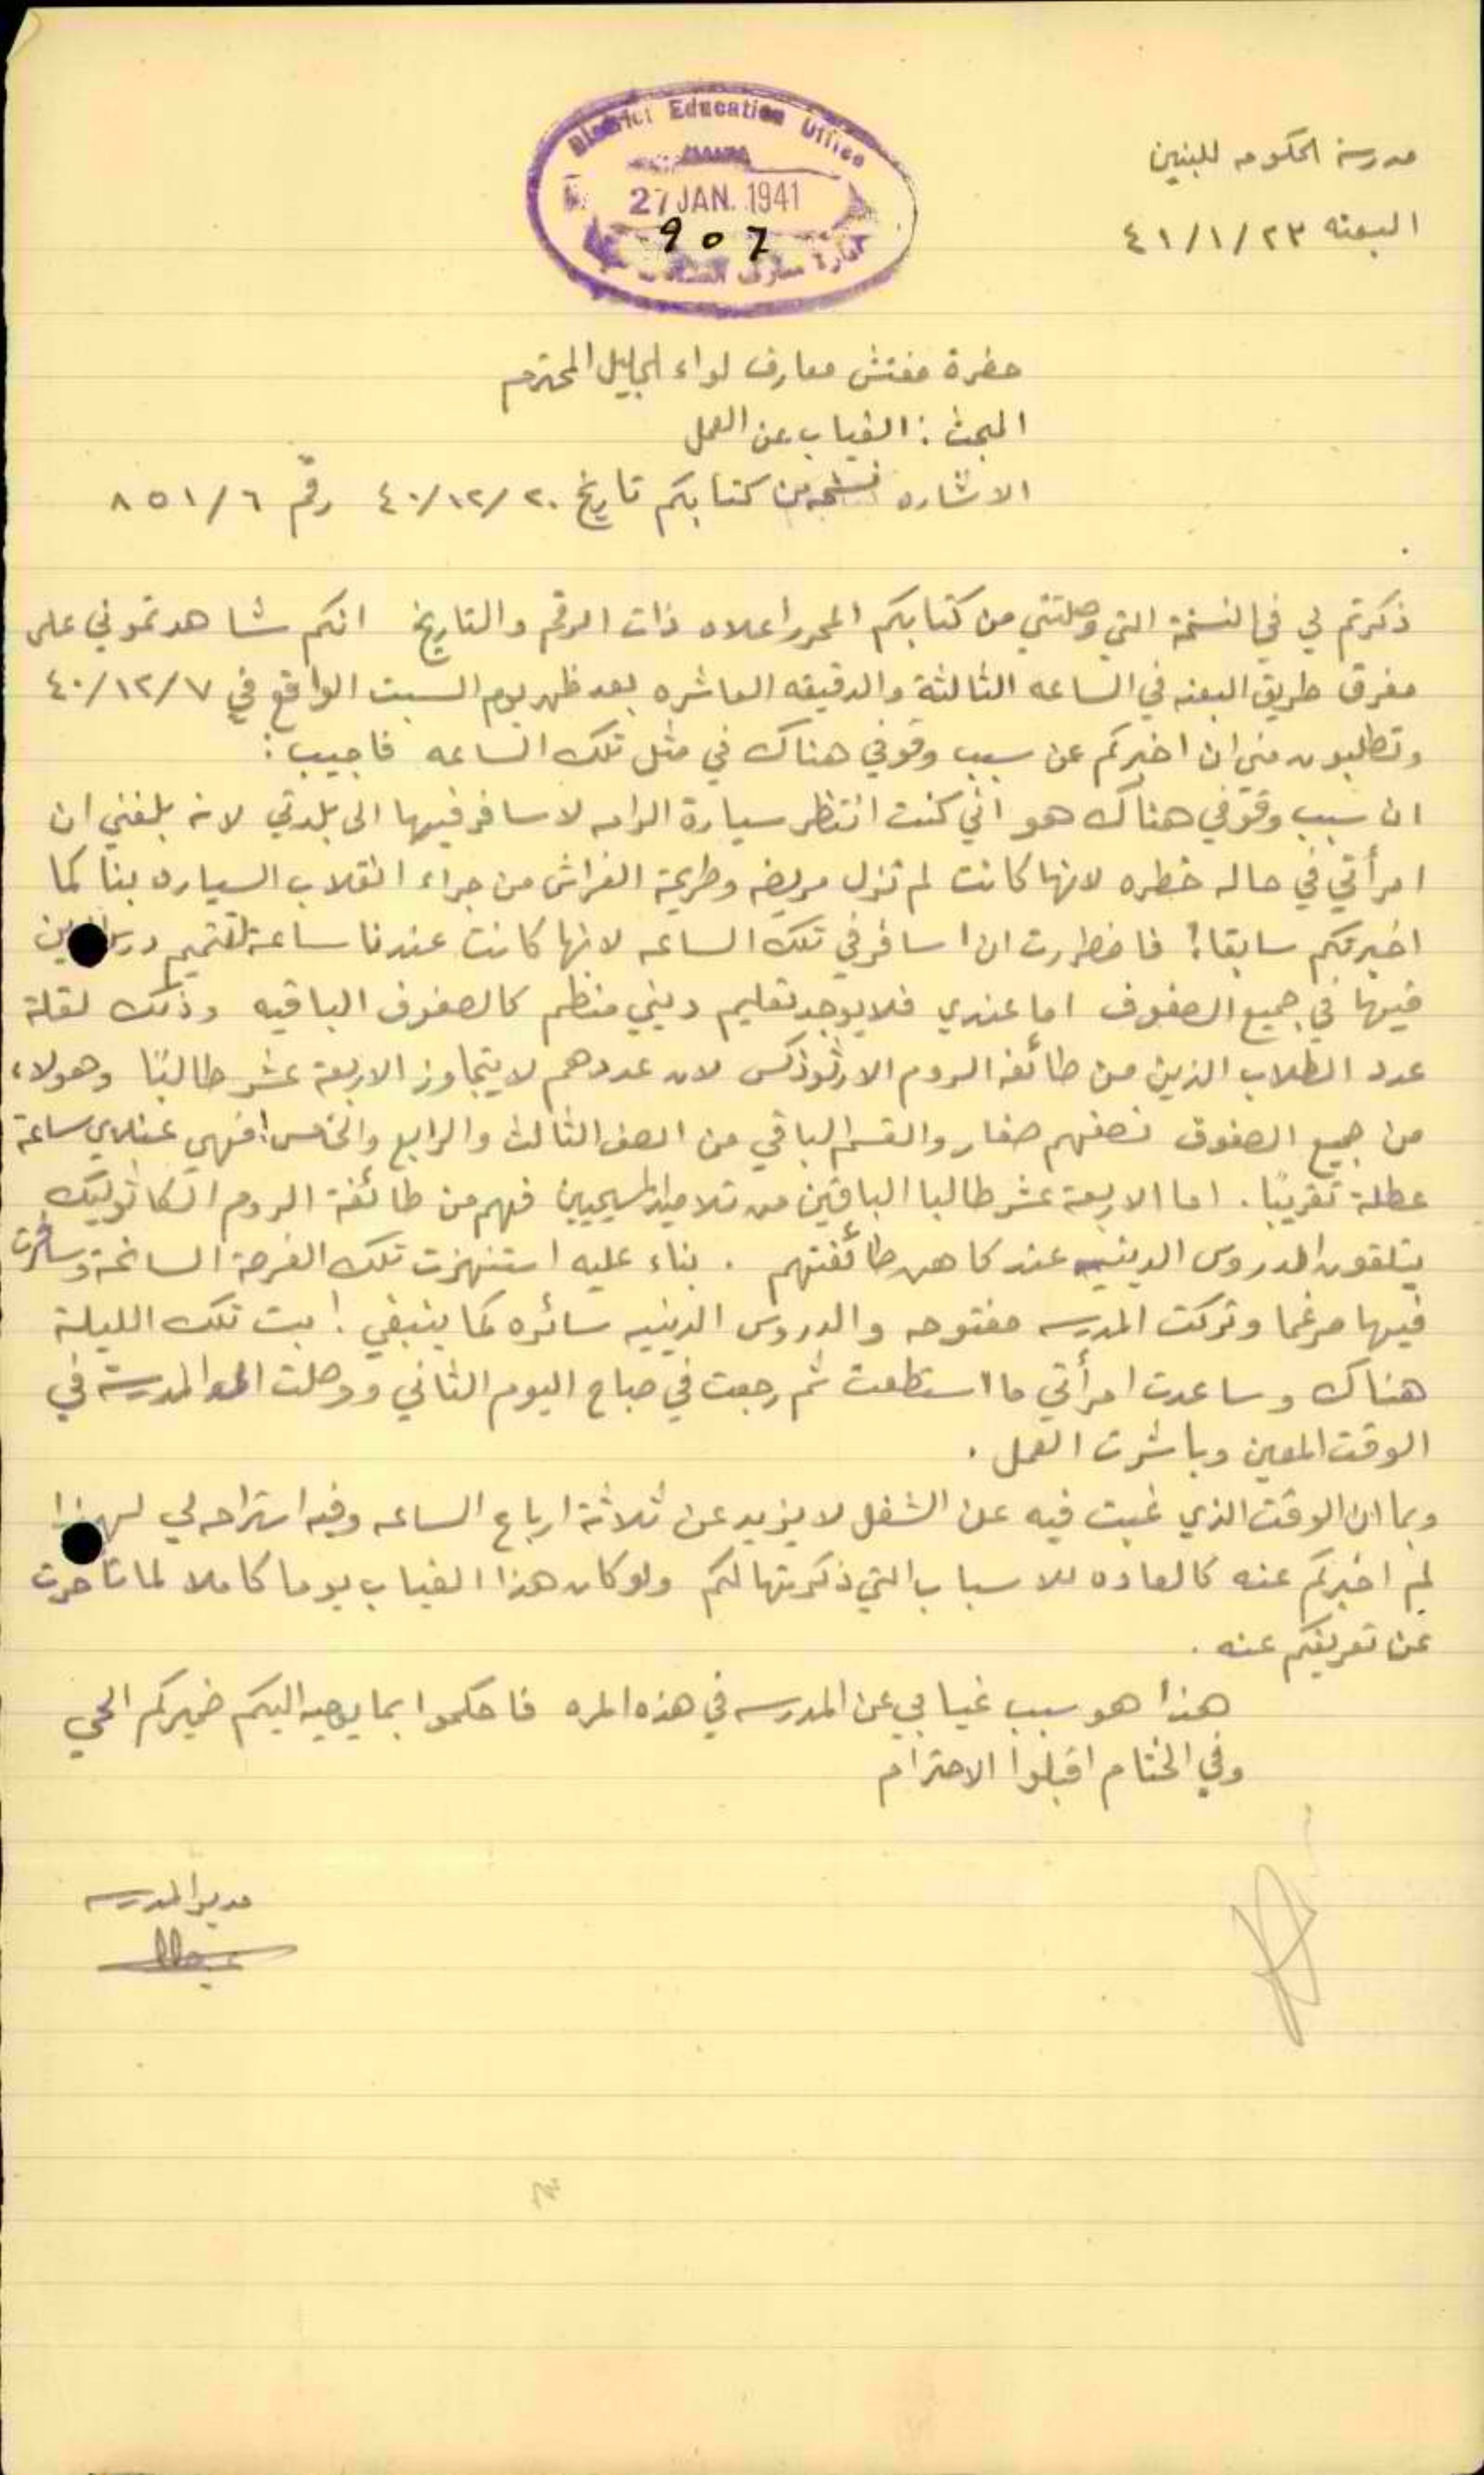 District Education Office
27 JAN. 1941
907
مدرسة الحكومه للبنين
البعنه ٢٣/١/٤١
حضرة مفتش معارف لواء الجليل المحترم
المبحث : الغياب عن العمل
الاشاره نسخه من كتابكم تاريخ ٤٠/١٢/٢٠ رقم ٨٥١/٦
ذكرتم لي في النسخة التي وصلتني من كتابكم المحرر اعلاه ذات الرقم والتاريخ انكم شاهدتموني على
مفرق طريق البعنه في الساعه الثالثة والدقيقه العاشره بعد ظهر يوم السبت الواقع في ٤٠/١٢/٧
وتطلبون مني ان اخبركم عن سبب وقوفي هناك في مثل تلك الساعه فاجيب :
ان سبب وقوفي هناك هو اني كنت انتظر سيارة الرامه لاسافر فيها الى بلدتي لانه بلغني ان
امرأتي في حاله خطره لانها كانت لم تزل مريضه وطريحة الفراش من جراء انقلاب السياره بنا كما
اخبرتكم سابقا! فاضطررت ان اسافر في تلك الساعه لانها كانت عندنا ساعة لتتميم
فيها في جميع الصفوف اما عندي فلا يوجد تعليم ديني منظم كالصفوف الباقيه وذلك لقلة
عدد الطلاب الذين من طائفة الروم الارثوذكس لان عددهم لا يتجاوز الاربعة عشر طالبًا وهولاء
من جميع الصفوف نصفهم صغار والقسم الباقي من الصف الثالث والرابع والخامس! فهي عندي ساعة
عطلة تقريبًا . اما الاربعة عشر طالبا الباقين من تلاميذ المسيحيين فهم من طائفة الروم الكاثوليك
يتلقون الدروس الدينيه عند كاهن طائفتهم . بناء عليه استنهزت تلك الفرصة السانحة وسافرت
فيها مرغما وتركت المدرسه مفتوحه والدروس الدينيه سائره كما ينبغي ! بت تلك الليلة
هناك وساعدت امرأتي ما استطعت ثم رجعت في صباح اليوم الثاني ووصلت المدرسة في
الوقت المعين وباشرت العمل .
وبما ان الوقت الذي غبت فيه عن الشغل لا يزيد عن ثلاثة ارباع الساعه وفيه استراحه لي لهذا
لم اخبركم عنه كالعاده للاسباب التي ذكرتها لكم ولو كان هذا الغياب يوما كاملا لما تأخرت
عن تعريفكم عنه .
هذا هو سبب غيابي عن المدرسه في هذه المره فاحكموا بما يوحيه اليكم ضميركم الحي
وفي الختام اقبلوا الاحترام
مدير المدرسه